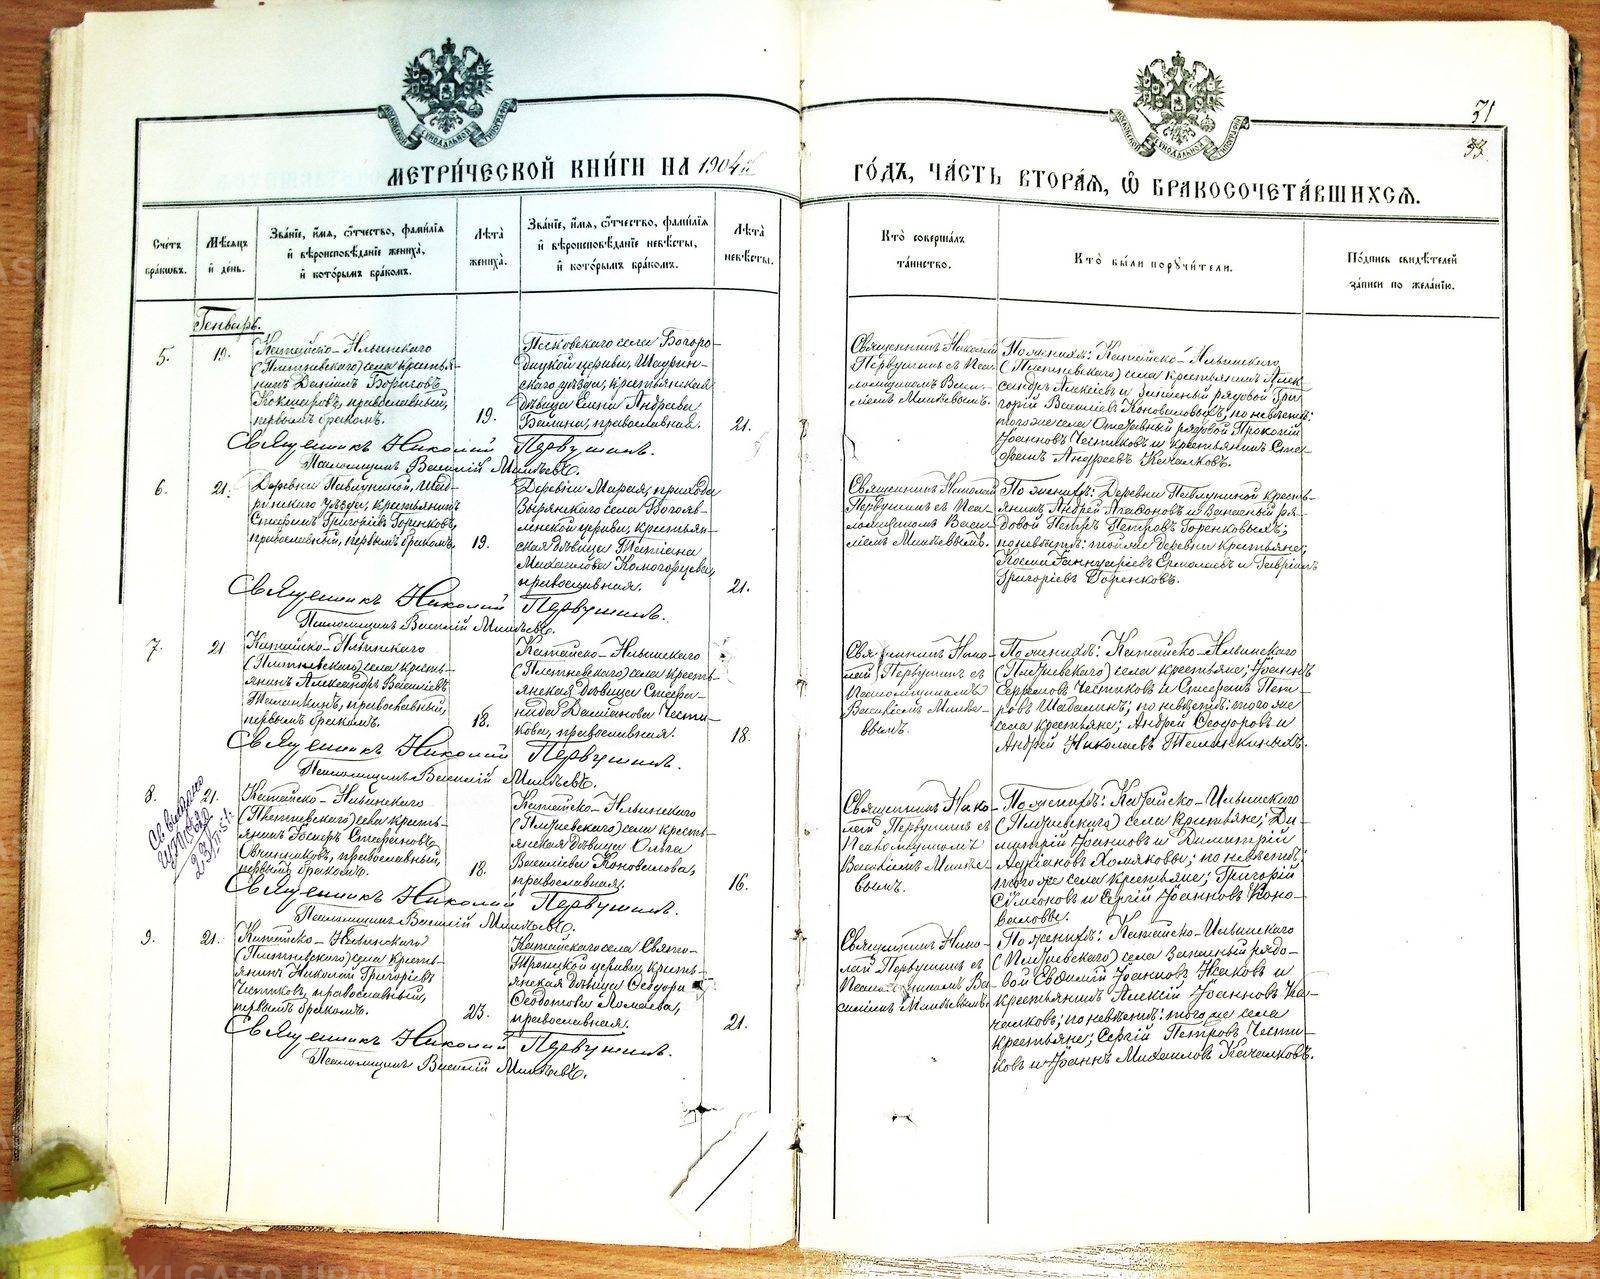 МЕТРИ́ЧЕСКОЙ КНИ́ГИ НА 1904й
ГО́ДЪ, ЧА́СТЬ ВТОРА́Я, Ѡ҆ БРАКОСОЧЕТА́ВШИХСЯ.
31
33
Сче́тъ бра́кωвъ.
Мѣ́сяцъ и҆ де́нь.
Зва́нїе, и҆́мя, ѻ҆́тчество, фами́лїя и҆ вѣроисповѣ́данїе жениха̀, и҆ кото́рымъ бра́комъ.
Лѣ́та жениха̀.
Зва́нїе, и҆́мя, ѻ҆́тчество, фами́лїя и҆ вѣроисповѣ́данїе невѣ́сты, и҆ кото́рымъ бра́комъ.
Лѣ́та невѣ́сты.
Кто̀ соверша́лъ та́инство.
Кто̀ бы́ли порꙋчи́тели.
По́дпись свидѣ́телей за́писи по жела́нїю.
Генварь.
5.
19.
Катайско-Ильинскаго
(Плетневскаго) села крестья-
нинъ Данiилъ
Кокшаровъ, православный,
первымъ бракомъ.
19.
Песковскаго села Богоро-
дицкой церкви, Шадрин-
скаго уѣзда, крестьянская
дѣвица Андреева
православная.
21.
Священникъ Николай
Первушинъ съ Пса-
ломщикомъ Васи-
лiемъ
По женихѣ: Катайско-Ильинскаго
(Плетневскаго) села крестьянинъ Алек-
сандръ Алексѣевъ и Запасный рядовой Гри-
горiй Васильевъ Коноваловыхъ, по невѣстѣ:
того же села Отставный рядовой Прокопiй
Iоанновъ Честиковъ и крестьянинъ Сте-
фанъ Андреевъ Качалковъ.
Священникъ Николай Первушинъ.
Псаломщикъ Василiй
6.
21.
Деревни Павлуниной, Шад-
ринскаго уѣзда, крестьянинъ
Стефанъ Григорiевъ Горенковъ,
православный, первымъ бракомъ.
19.
Деревни прихода
Зырянскаго села Богояв-
ленской церкви, крестьян-
ская дѣвица Татiана
Михаилова
православная.
21.
Священникъ Николай
Первушинъ съ Пса-
ломщикомъ Васи-
лiемъ
По женихѣ: Деревни Павлуниной кресть-
янинъ Андрей Агафоновъ и Запасный ря-
довой Петръ Петровъ Горенковыхъ;
по невѣстѣ: той же деревни крестьяне;
Косма Iаннуарiевъ Ермолаевъ и Гаврiилъ
Григорiевъ Горенковъ.
Священникъ Николай Первушинъ.
Псаломщикъ Василiй
7.
21
Катайско-Ильинскаго
(Плетневскаго) села кресть-
янинъ Александръ Василiевъ
православный,
первымъ бракомъ.
18.
Катайско-Ильинскаго
(Плетневскаго) села кресть-
янская дѣвица Стефа-
нида Дамiанова Чести-
кова, православная.
18.
Священникъ Нико-
лай Первушинъ съ
Псаломщикомъ
Василiемъ
По женихѣ: Катайско-Ильинскаго
(Плетневскаго) села крестьяне; Iоаннъ
Честиковъ и Стефанъ Пет-
ровъ Шабалинъ; по невѣстѣ: того же
села крестьяне; Андрей Ѳеодоровъ и
Андрей Николаевъ
Священникъ Николай Первушинъ.
Псаломщикъ Василiй
8.
21.
Катайско-Ильинскаго
(Плетневскаго) села кресть-
янинъ Стефановъ
Овчинниковъ, православный,
первымъ бракомъ.
18.
Катайско-Ильинскаго
(Плетневскаго) села кресть-
янская дѣвица Ольга
Василiева Коновалова,
православная.
16.
Священникъ Нико-
лай Первушинъ съ
Псаломщикомъ
Василiемъ
По женихѣ: Катайско-Ильинскаго
(Плетневскаго) села крестьяне; Ди-
митрiй Iоанновъ и Димитрiй
Адрiановъ Хомяковы; по невѣстѣ:
того же села крестьяне; Григорiй
Сѵмеоновъ и Сергiй Iоанновъ Коно-
валовы.
Священникъ Николай Первушинъ.
Псаломщикъ Василiй
9.
21.
Катайско-Ильинскаго
(Плетневскаго) села кресть-
янинъ Николай Григорiевъ
Честиковъ, православный,
первымъ бракомъ.
23.
Катайскаго села Свято-
Троицкой церкви, кресть-
янская дѣвица Ѳеодора
Ѳеодотова
православная.
21.
Священникъ Нико-
лай Первушинъ съ
Псаломщикомъ Ва-
силiемъ
По женихѣ: Катайско-Ильинскаго
(Плетневскаго) села Запасный рядо-
вой Евфимiй Iоанновъ Исаковъ и
крестьянинъ Алексiй Iоанновъ Ка-
чалковъ; по невѣстѣ: того же села
крестьяне; Сергiй Петровъ Чести-
ковъ и Iоаннъ Михаиловъ Качалковъ.
Священникъ Николай Первушинъ.
Псаломщикъ Василiй